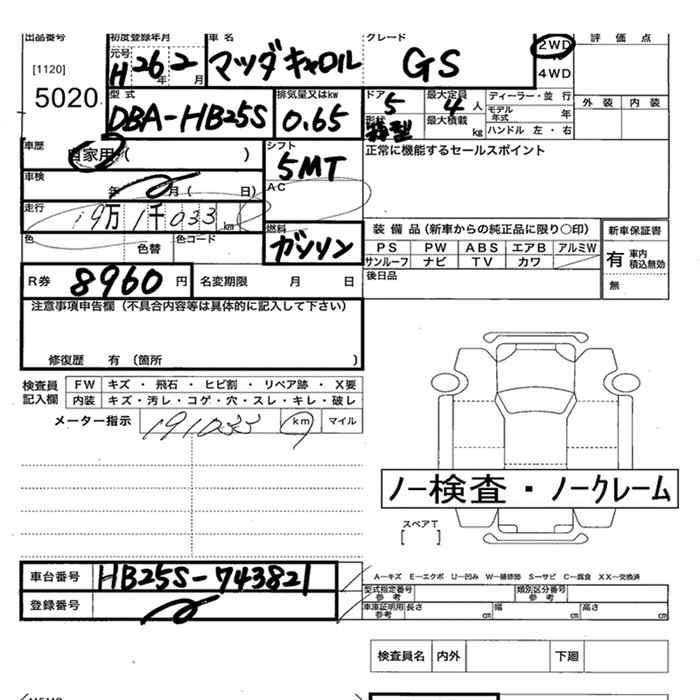 出品番号 初度登録年月 車名 グレード 2WD 評価点
[1120] 元号 H 26年 2月 マツダキャロル GS 4WD
5020 型式 排気量又はkw ドア 最大定員 ディーラー・並行 外装 内装
DBA-HB25S 0.65 5 4人 モデル年式 年
形状 箱型 最大積載 kg ハンドル 左・右
車歴 自家用( ) シフト 正常に機能するセールスポイント
5MT
車検 年 月( 日) AC
走行 19万1千033km
色 色替 色コード 燃料 ガソリン
装備品(新車からの純正品に限り○印) 新車保証書
PS PW ABS エアB アルミW 有 車内積込無効
サンルーフ ナビ TV カワ
R券 8960円 名変期限 月 日 後日品 無
注意事項申告欄(不具合内容等は具体的に記入して下さい)
修復歴 有(箇所 )
検査員記入欄 FW キズ・飛石・ヒビ割・リペア跡・X要
内装 キズ・汚レ・コゲ・穴・スレ・キレ・破レ
メーター指示 191033 km マイル
ノー検査・ノークレーム
スペアT
[ ]
車台番号 HB25S-743821
登録番号
A—キズ E—エクボ U—凹み W—補修跡 S—サビ C—腐食 XX—交換済
型式指定番号 参考 類別区分番号 参考
車庫証明用 参考 長さ cm 幅 cm 高さ cm
検査員名 内外 下廻